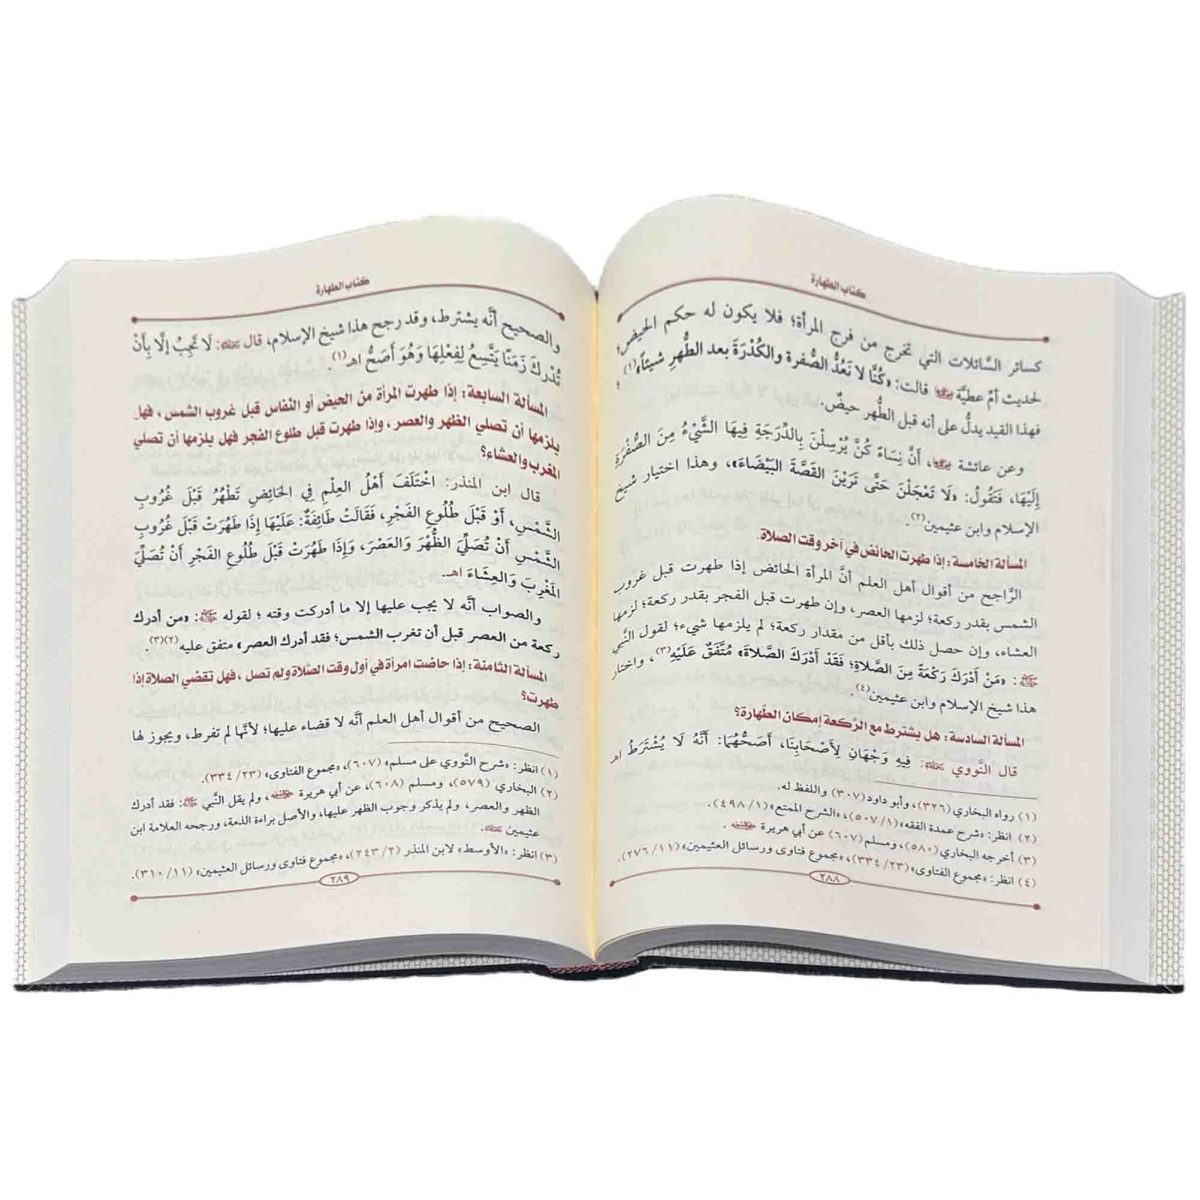 كتاب الطهارة
كسائر السَّائلات التي تخرج من فرج المرأة؛ فلا يكون له حكم الحيض؛
لحديث أمِّ عطيَّة قالت: «كُنَّا لا نَعُدُّ الصُّفرة والكُدْرَةَ بعد الطُّهرِ شيئاً»(١)؛
فهذا القيد يدلُّ على أنه قبل الطُّهر حيضٌ.
وعن عائشة، أَنَّ نِسَاءً كُنَّ يُرْسِلْنَ بِالدِّرَجَةِ فِيهَا الشَّيْءُ مِنَ الصُّفْرَةِ
إِلَيْهَا، فَتَقُولُ: «لَا تَعْجَلْنَ حَتَّى تَرَيْنَ القَصَّةَ البَيْضَاءَ»، وهذا اختيار شيخ
الإسلام وابن عثيمين(٢).
المسألة الخامسة: إذا طهرت الحائض في آخر وقت الصلاة.
الرَّاجح من أقوال أهل العلم أنَّ المرأة الحائض إذا طهرت قبل غروب
الشمس بقدر ركعة؛ لزمها العصر، وإن طهرت قبل الفجر بقدر ركعة؛ لزمها
العشاء، وإن حصل ذلك بأقل من مقدار ركعة؛ لم يلزمها شيء؛ لقول النَّبي
ﷺ: «مَنْ أَدْرَكَ رَكْعَةً مِنَ الصَّلاةِ؛ فَقَدْ أَدْرَكَ الصَّلاةَ» مُتَّفَقٌ عَلَيْهِ(٣)، واختار
هذا شيخ الإسلام وابن عثيمين(٤).
المسألة السادسة: هل يشترط مع الرَّكعة إمكان الطَّهارة؟
قال النَّووي: فِيهِ وَجْهَانِ لِأَصْحَابِنَا، أَصَحُّهُمَا: أَنَّهُ لَا يُشْتَرَطُ اهـ
(١) رواه البخاري (٣٢٦)، وأبو داود (٣٠٧) واللفظ له.
(٢) انظر: «شرح عمدة الفقه» (٥٠٧/١)، «الشرح الممتع» (٤٩٨/١).
(٣) أخرجه البخاري (٥٨٠)، ومسلم (٦٠٧) عن أبي هريرة.
(٤) انظر: «مجموع الفتاوى» (٣٣٤/٢٣)، «مجموع فتاوى ورسائل العثيمين» (٢٧٦/١١).
٢٨٨
كتاب الطهارة
والصحيح أنَّه يشترط، وقد رجح هذا شيخ الإسلام، قال: لَا تَجِبُ إِلَّا بِأَنْ
تُدْرِكَ زَمَنًا يَتَّسِعُ لِفِعْلِهَا وَهُوَ أَصَحُّ اهـ(١).
المسألة السابعة: إذا طهرت المرأة من الحيض أو النِّفاس قبل غروب الشمس، فهل
يلزمها أن تصلي الظهر والعصر، وإذا طهرت قبل طلوع الفجر فهل يلزمها أن تصلي
المغرب والعشاء؟
قال ابن المنذر: اخْتَلَفَ أَهْلُ العِلْمِ فِي الحَائِضِ تَطْهُرُ قَبْلَ غُرُوبِ
الشَّمْسِ، أَوْ قَبْلَ طُلُوعِ الفَجْرِ، فَقَالَتْ طَائِفَةٌ: عَلَيْهَا إِذَا طَهُرَتْ قَبْلَ غُرُوبِ
الشَّمْسِ أَنْ تُصَلِّيَ الظُّهْرَ وَالعَصْرَ، وَإِذَا طَهُرَتْ قَبْلَ طُلُوعِ الفَجْرِ أَنْ تُصَلِّيَ
المَغْرِبَ وَالعِشَاءَ اهـ.
والصواب أنَّه لا يجب عليها إلا ما أدركت وقته؛ لقوله ﷺ: «من أدرك
ركعة من العصر قبل أن تغرب الشمس؛ فقد أدرك العصر» متفق عليه(٢)(٣).
المسألة الثامنة: إذا حاضت امرأة في أول وقت الصَّلاة ولم تصل، فهل تقضي الصلاة إذا
طهرت؟
الصحيح من أقوال أهل العلم أنَّه لا قضاء عليها؛ لأنَّها لم تفرط، ويجوز لها
(١) انظر: «شرح النَّووي على مسلم» (٦٠٧)، «مجموع الفتاوى» (٣٣٤/٢٣).
(٢) البخاري (٥٧٩)، ومسلم (٦٠٨)، عن أبي هريرة، ولم يقل النَّبي ﷺ: فقد أدرك
الظهر والعصر، ولم يذكر وجوب الظهر عليها، والأصل براءة الذمة، ورجحه العلامة ابن
عثيمين.
(٣) انظر: «الأوسط» لابن المنذر (٢٤٣/٢)، «مجموع فتاوى ورسائل العثيمين» (٣١٠/١١).
٢٨٩